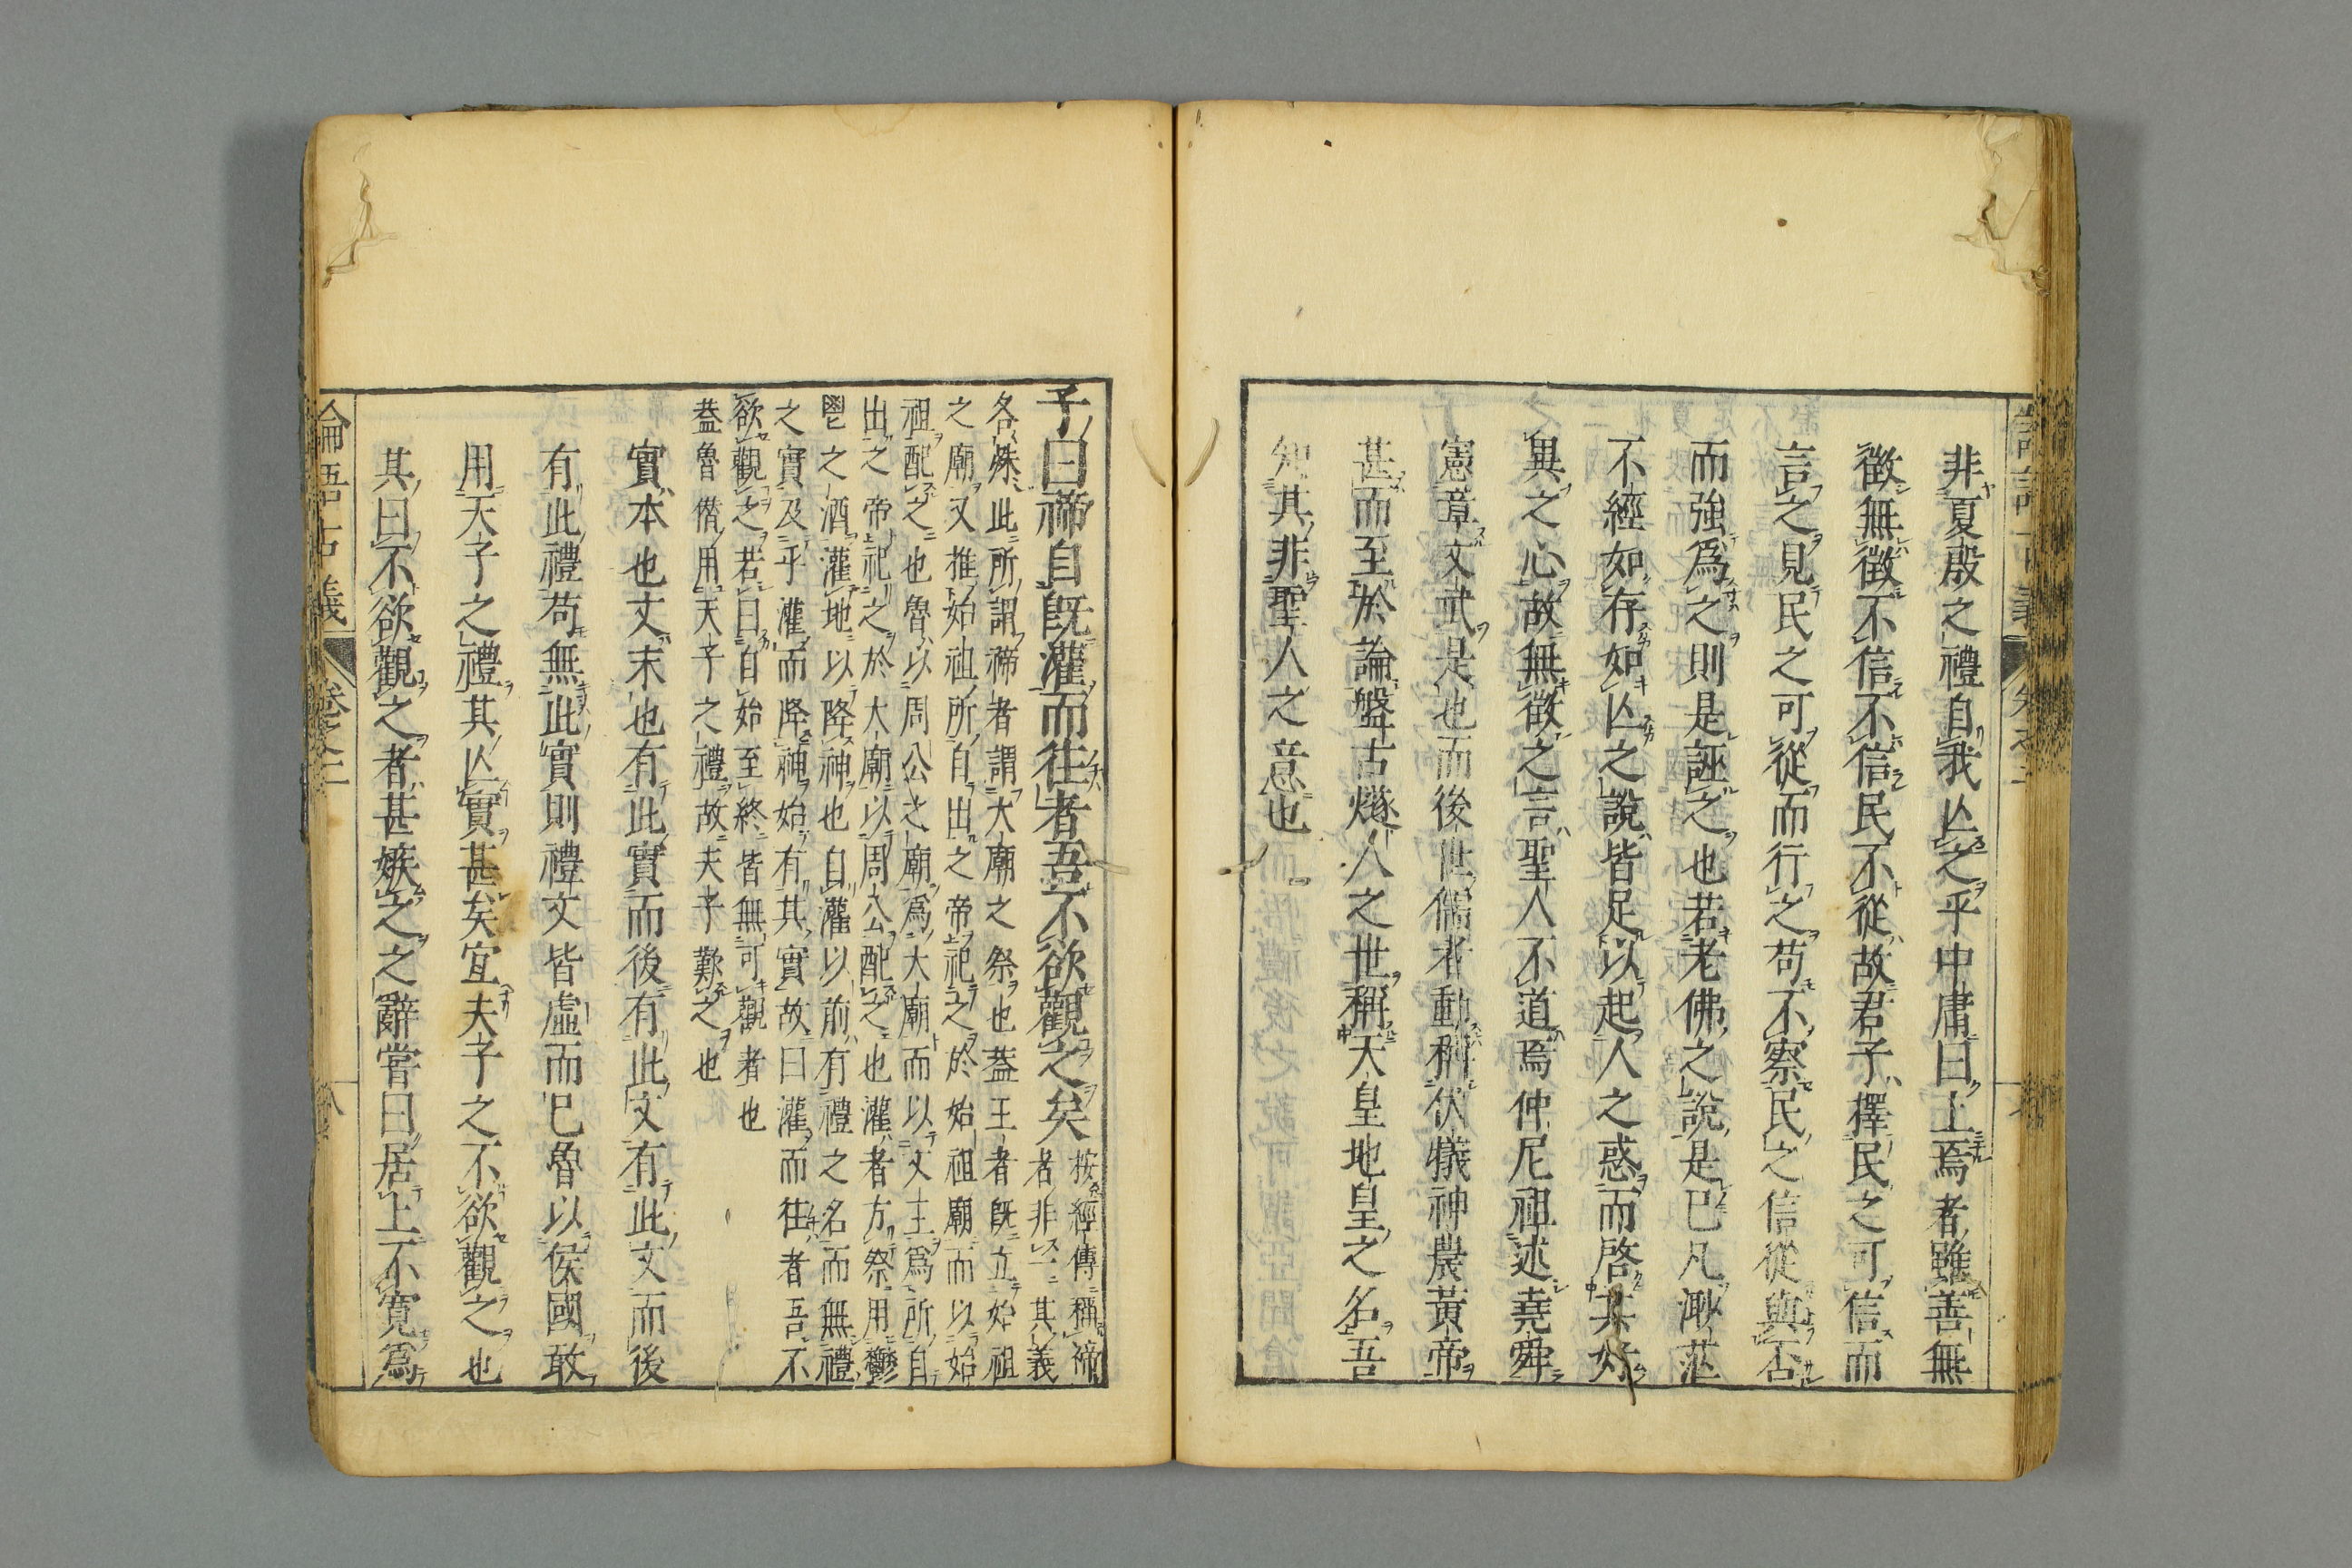 非夏殷之禮自我亾之乎中庸曰上焉者雖善無
徵無徵不信不信民不從故君子擇民之可信而
言之見民之可從而行之苟不察民之信從與否
而強爲之則是誣之也若老佛之說是已凡渺茫
不經如存如亾之說皆足以起人之惑而啓其好
異之心故無徵之言聖人不道焉仲尼祖述堯舜
憲章文武是也而後世儒者動稱伏犧神農黃帝
甚而至於論盤古燧人之世稱天皇地皇之名吾
知其非聖人之意也
子曰禘自既灌而往者吾不欲觀之矣
按經傳稱禘
者非一其義
各殊此所謂禘者謂大廟之祭也蓋王者既立始祖
之廟又推始祖所自出之帝祀之於始祖廟而以始
祖配之也魯以周公之廟爲大廟而以文王爲所自
出之帝祀之於大廟以周公配之也灌者方祭用鬱
鬯之酒灌地以降神也自灌以前有禮之名而無禮
之實及乎灌而降神始有其實故曰灌而往者吾不
欲觀之若曰自始至終皆無可觀者也
蓋魯僭用天子之禮故夫子歎之也
實本也文末也有此實而後有此文有此文而後
有此禮苟無此實則禮文皆虛而已魯以侯國敢
用天子之禮其亾實甚矣宜夫子之不欲觀之也
其曰不欲觀之者甚嫉之之辭嘗曰居上不寬爲
論語古義
卷之二
八